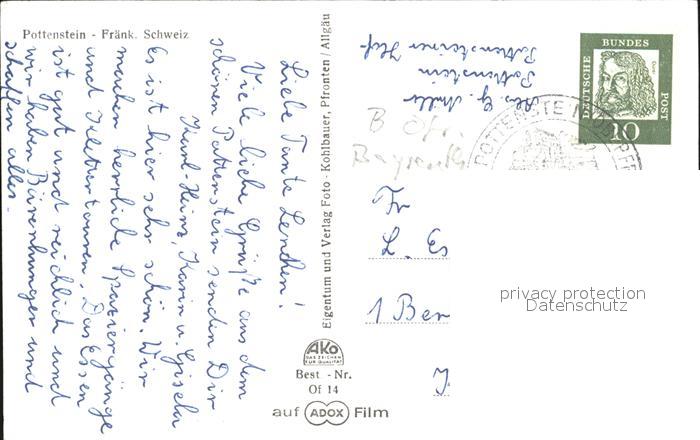 Pottenstein - Fränk. Schweiz
Liebe Tante Lenchen!
Viele liebe Grüße aus dem
schönen Pottenstein senden Dir
Karl-Heinz, Karin u. Gisela
Es ist hier sehr schön. Wir
machen herrliche Spaziergänge
und Klettertouren. Das Essen
ist gut und reichlich und
wir haben Bärenhunger und
schaffen alles.
Eigentum und Verlag Foto - Kohlbauer, Pfronten / Allgäu
AKO
DAS ZEICHEN
FÜR QUALITÄT
Best - Nr.
Of 14
auf ADOX Film
Pottenstein
Pottensteiner Hof
B Ofr.
Bayreuth
DEUTSCHE BUNDES POST
10
POTTENSTEIN
Fr
L. Es
1 Ber
privacy protection
Datenschutz